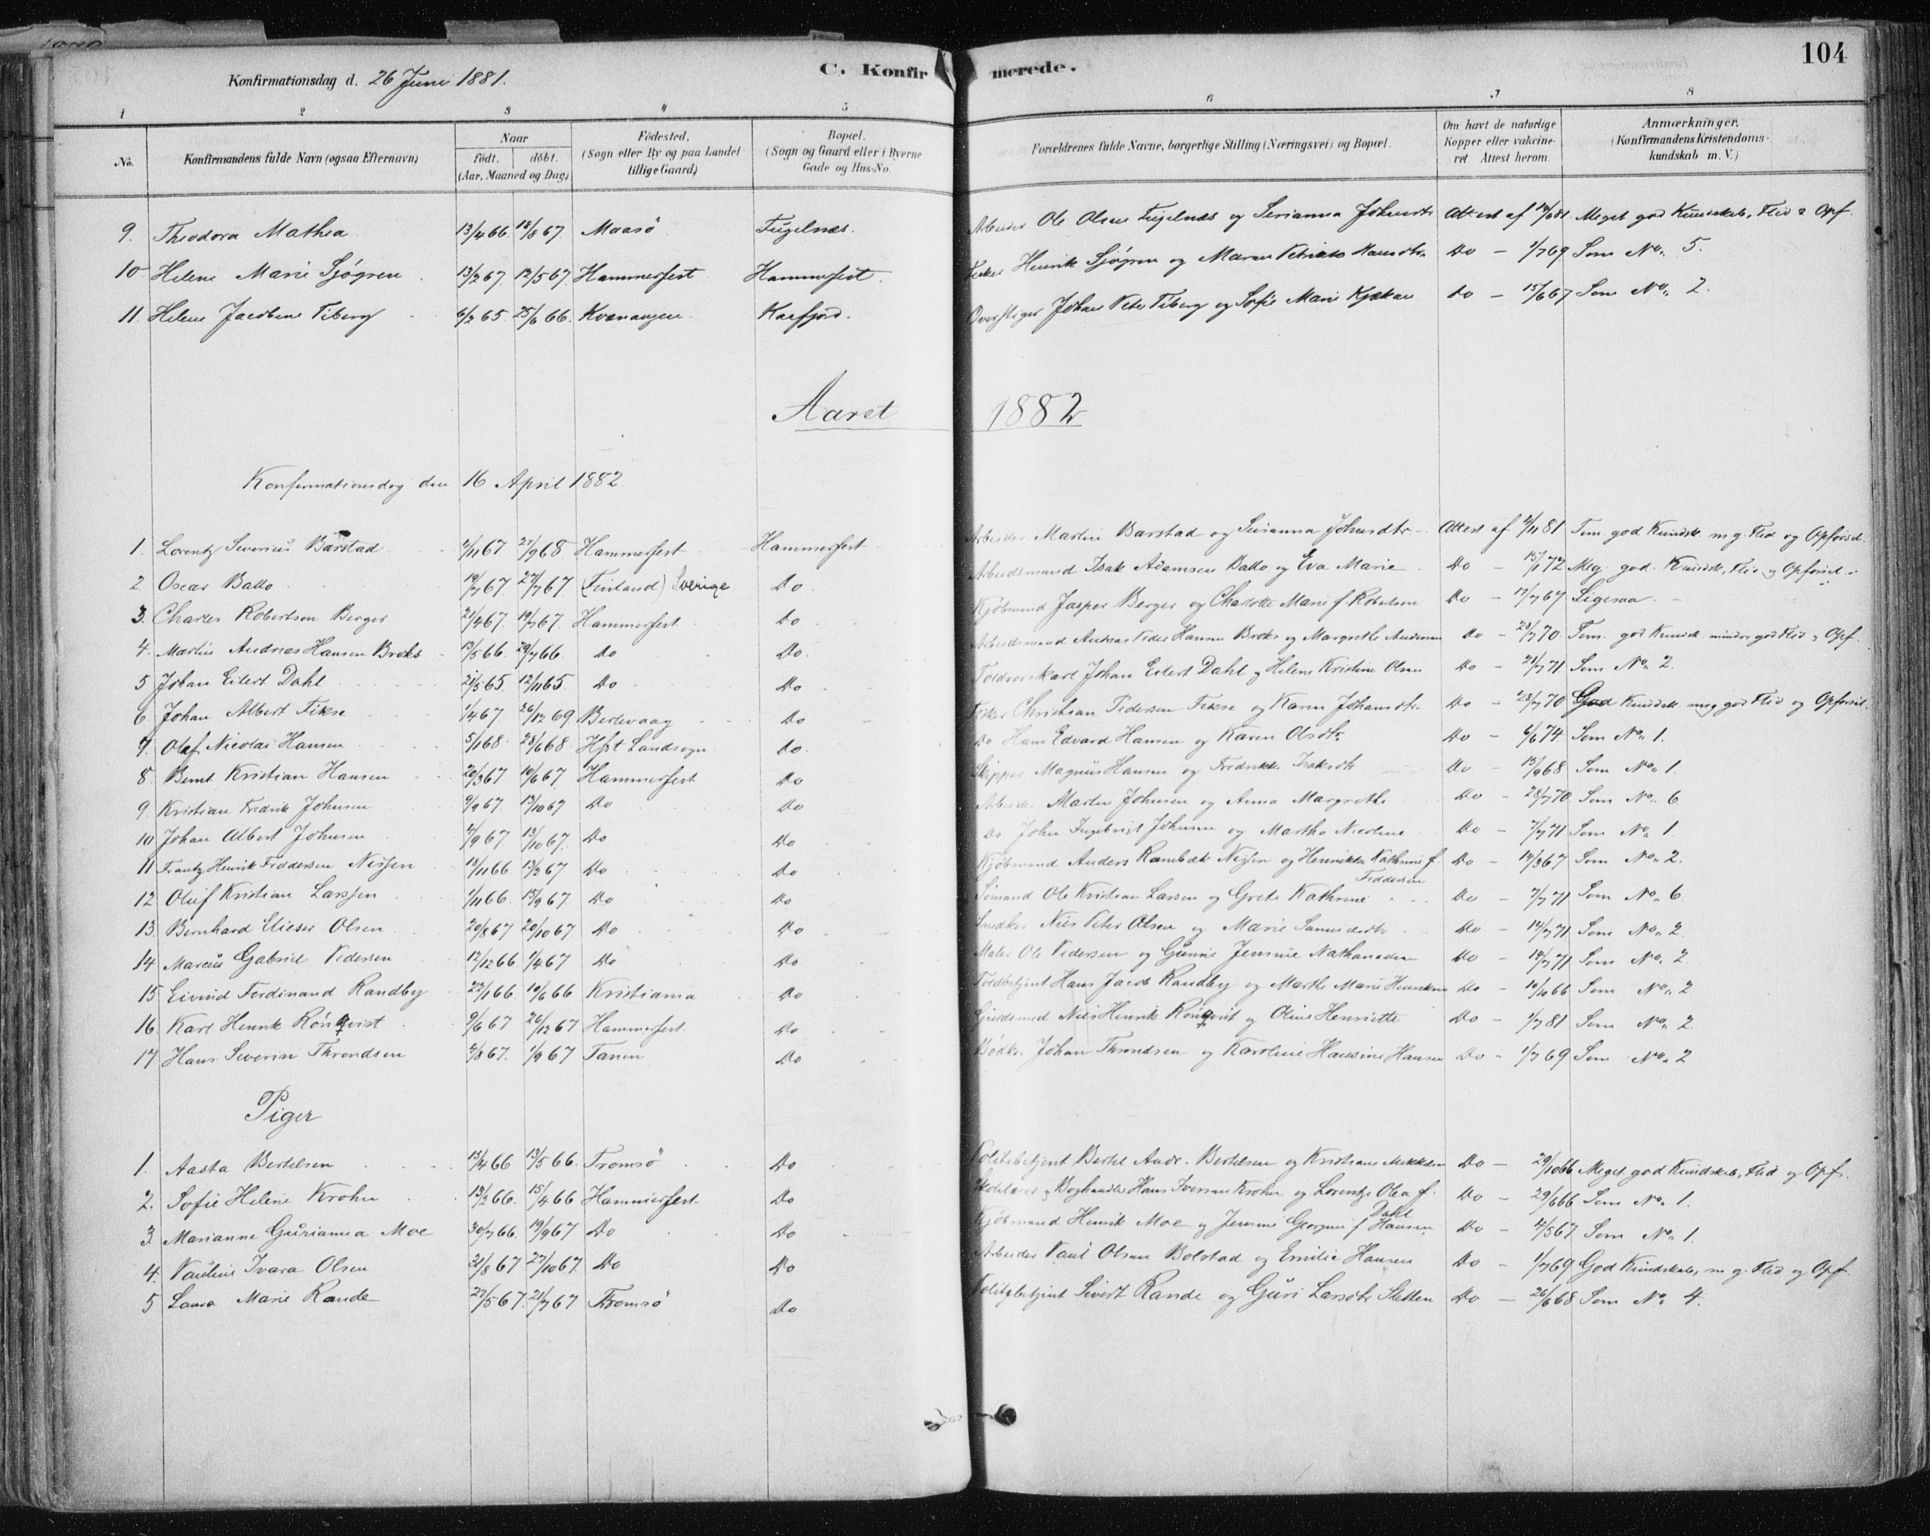 104
Konfirmationsdag d. 26 Juni 1881.
C. Konfirmerede.
1 2 3 4 5 6 7 8
No. Konfirmandens fulde Navn (ogsaa Efternavn) Naar født. døbt. (Aar, Maaned og Dag) Fødested. (Sogn eller By og paa Landet tillige Gaard) Bopæl. (Sogn og Gaard eller i Byerne Gade og Hus-No. Forældrenes fulde Navne, borgerlige Stilling (Næringsvei) og Bopæl. Om havt de naturlige Kopper eller vakcineret Attest herom. Anmærkninger. (Konfirmandens Kristendomskundskab m. V.)
9. Theodora Mathea 13/4 66 18/8 67. Maasö Fuglenæs. Arbeider Ole Olsen Fuglenæs og Serianna Johnsdtr Attest af 14/6 81 Meget god Kundskab, Flid & Opf.
10 Helene Marie Sjögren 13/2 67 12/5 67 Hammerfest Hammerfest. Henrik Sjögren og Maren Hansdtr. Do - 1/7 69 Som No. 5.
11. Helene Jacobine Tiberg 6/2 65 25/6 66. Kvænangen Kaafjord. Overstiger Johan Peter Tiberg og Sofie Marie Kjækan Do - 15/6 67 Som No. 2.
Aaret 1882
Konfirmationsdag den 16 April 1882
1. Lorentz Severius Barstad 2/11 67 27/9 68 Hammerfest Hammerfest Arbeider Martin Barstad og Serianna Johnsdtr. Attest af 2/11 81 Tem. god Kundsk. m g. Flid og Opførsel.
2 Oscar Ballo 19/7 67. 27/7 67 (Finland) Sverige Do. Arbeidsmand Isak Adamsen Ballo og Eva Marie Do - 15/1 72 Meg. god. Kundsk., Flid og Opførsel.
3. Charles Robertson Berger 21/4 67 19/7 67. Hammerfest Do Kjøbmand Jasper Berger og Charlotte Marie f. Robertson Do - 17/7 67 Ligesaa
4. Martin Andreas Hansen Broks 13/5 66. 29/7 66. Do Do. Arbeidsmand Andreas Peder Hansen Broks og Margrethe Andersen Do - 28/7 70. Tem. god Kundsk. mindre god Flid & Opf.
5 Johan Eilert Dahl 21/5 65. 12/11 65. Do Do Toldrorskarl Johan Eilert Dahl og Helene Kristine Olsen Do - 21/7 71 Som No. 2.
6. Johan Albert Fikse 1/4 67 26/12 69 Berlevaag Do Fisker Christian Pedersen Fikse og Karen Johansdtr. Do - 28/7 70 God Kundsk. meg god Flid og Opførsel.
7. Olaf Nicolai Hansen 5/1 68. 28/6 68. Hfst Landsogn Do. Do Hans Edvard Hansen og Karen Olsdtr Do - 6/6 74 Som No. 1.
8. Bernt Kristian Hansen 20/3 67 10/6 67 Hammerfest Do Skipper Magnus Hansen og Fredrikke Isaksdtr Do - 13/9 68 Som No. 1.
9 Kristian Fredrik Johnsen 9/9 67. 13/10 67 Do Do Arbeider Martin Johnsen og Anna Margrethe Do - 28/7 70 Som No. 6.
10 Johan Albert Johnsen 4/9 67 13/10 67. Do Do Do John Ingebrigt Johnsen og Martha Nicoline Do - 7/7 71 Som No. 1
11 Frantz Henrik Feddersen Nissen 13/11 66 17/2 67 Do Do Kjøbmand Anders Rambæk Nissen og Henrikke Kathrine f. Feddersen Do - 14/3 67 Som No. 2.
12 Oluf Kristian Larssen 1/11 66 15/9 67 Do Do Sømand Ole Kristian Larsen og Grete Kathrine Do - 7/7 71 Som No. 6
13 Bernhard Elieser Olsen 20/8 67 20/10 67. Do Do Snedker Nils Peter Olsen og Marie Do - 14/7 71 Som No. 2
14 Marcus Gabriel Pedersen 12/12 66 1/4 67 Do Do Maler Ole Pedersen og Gunnie Jensine Nathanaelsen Do - 14/7 71 Som No. 2
15 Eivind Ferdinand Randby 22/1 66. 10/6 66 Kristiania Do Toldbetjent Hans Jacob Randby og Marthe Marie Henriksen Do - 10/11 66 Som No. 2
16. Karl Henrik Rönqvist 9/6 67 26/12 67 Hammerfest Do Guldsmed Nils Henrik Rönqvist og Oline Henriette Do - 1/7 81 Som No. 2.
17 Hans Severin Throndsen 2/8 67. 1/9 67 Tanen Do Bødker Johan Throndsen og Karoline Hansine Hansen Do - 1/7 69 Som No. 2
Piger
1. Aasta Bertelsen 13/4 66 13/5 66. Tromsö Do Politibetjent Bertel Andr. Bertelsen og Kristiane Do - 29/10 66 Meget god Kundskab, Flid og Opf.
2. Sofie Helene Krohn 13/2 66. 15/4 66 Hammerfest Do Skolelærer og Boghandler Hans Iversen Krohn og Lorentze Olea f. Dahl Do - 29/6 66 Som No. 1.
3 Marianne Gurianna Moe 30/7 66. 19/9 67 Do Do Kjøbmand Henrik Moe og Jensine Georgine f. Hansen Do - 4/5 67 Som No. 1.
4. Pauline Ivara Olsen 21/8 67 27/10 67. Do Do Arbeider Paul Olsen Bolstad og Emilie Hansen Do - 1/7 69 God Kundskab, m g. Flid og Opf
5 Laura Marie Rande 27/5 67. 21/7 67 Tromsö Do Politibetjent Sivert Rande og Guri Larsdtr Sletten Do - 26/6 68 Som No. 4.